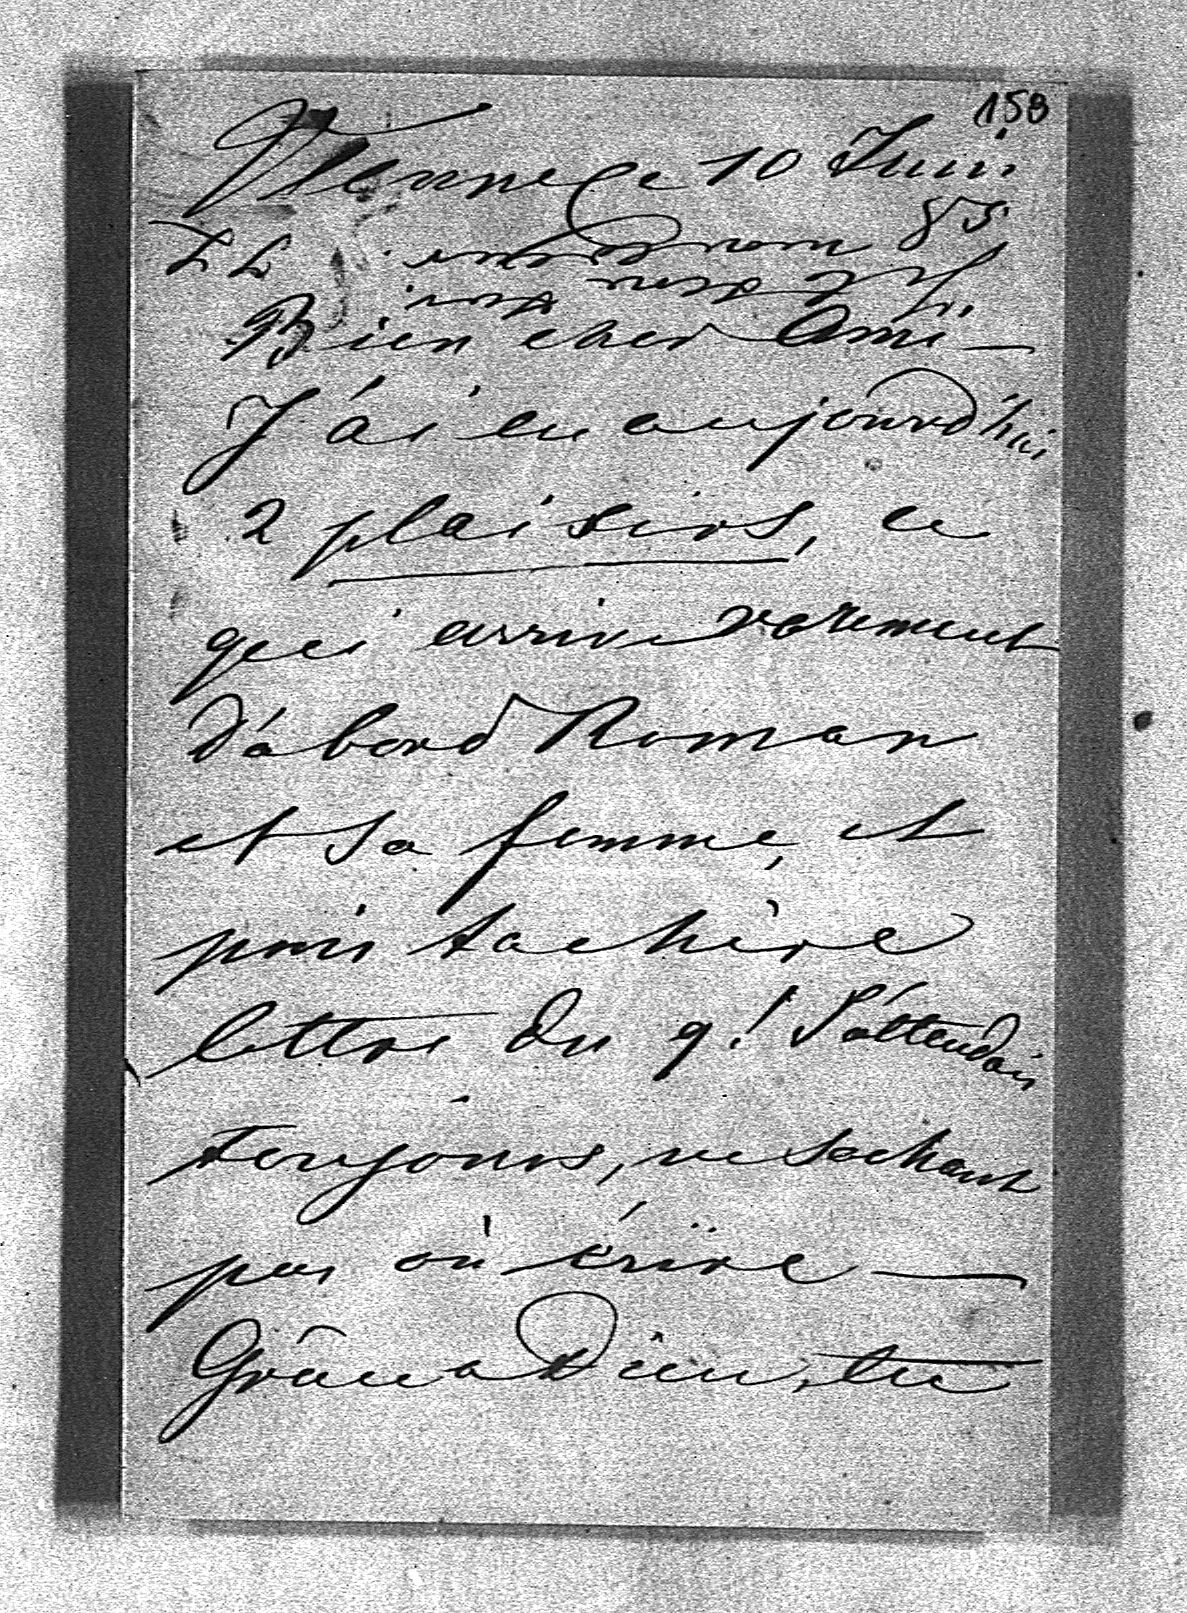 158
Vienne Ce 10 Juin
85
Bien cher Ami —
J'ai eu aujourd'hui
2 plaisirs, ce
qui arrive rarement
d'abord Roman
et sa femme, et
puis ta chère
lettre du 9! J'attendais
toujours, ne sachant
pas où écrire —
Grâce a Dieu, tu